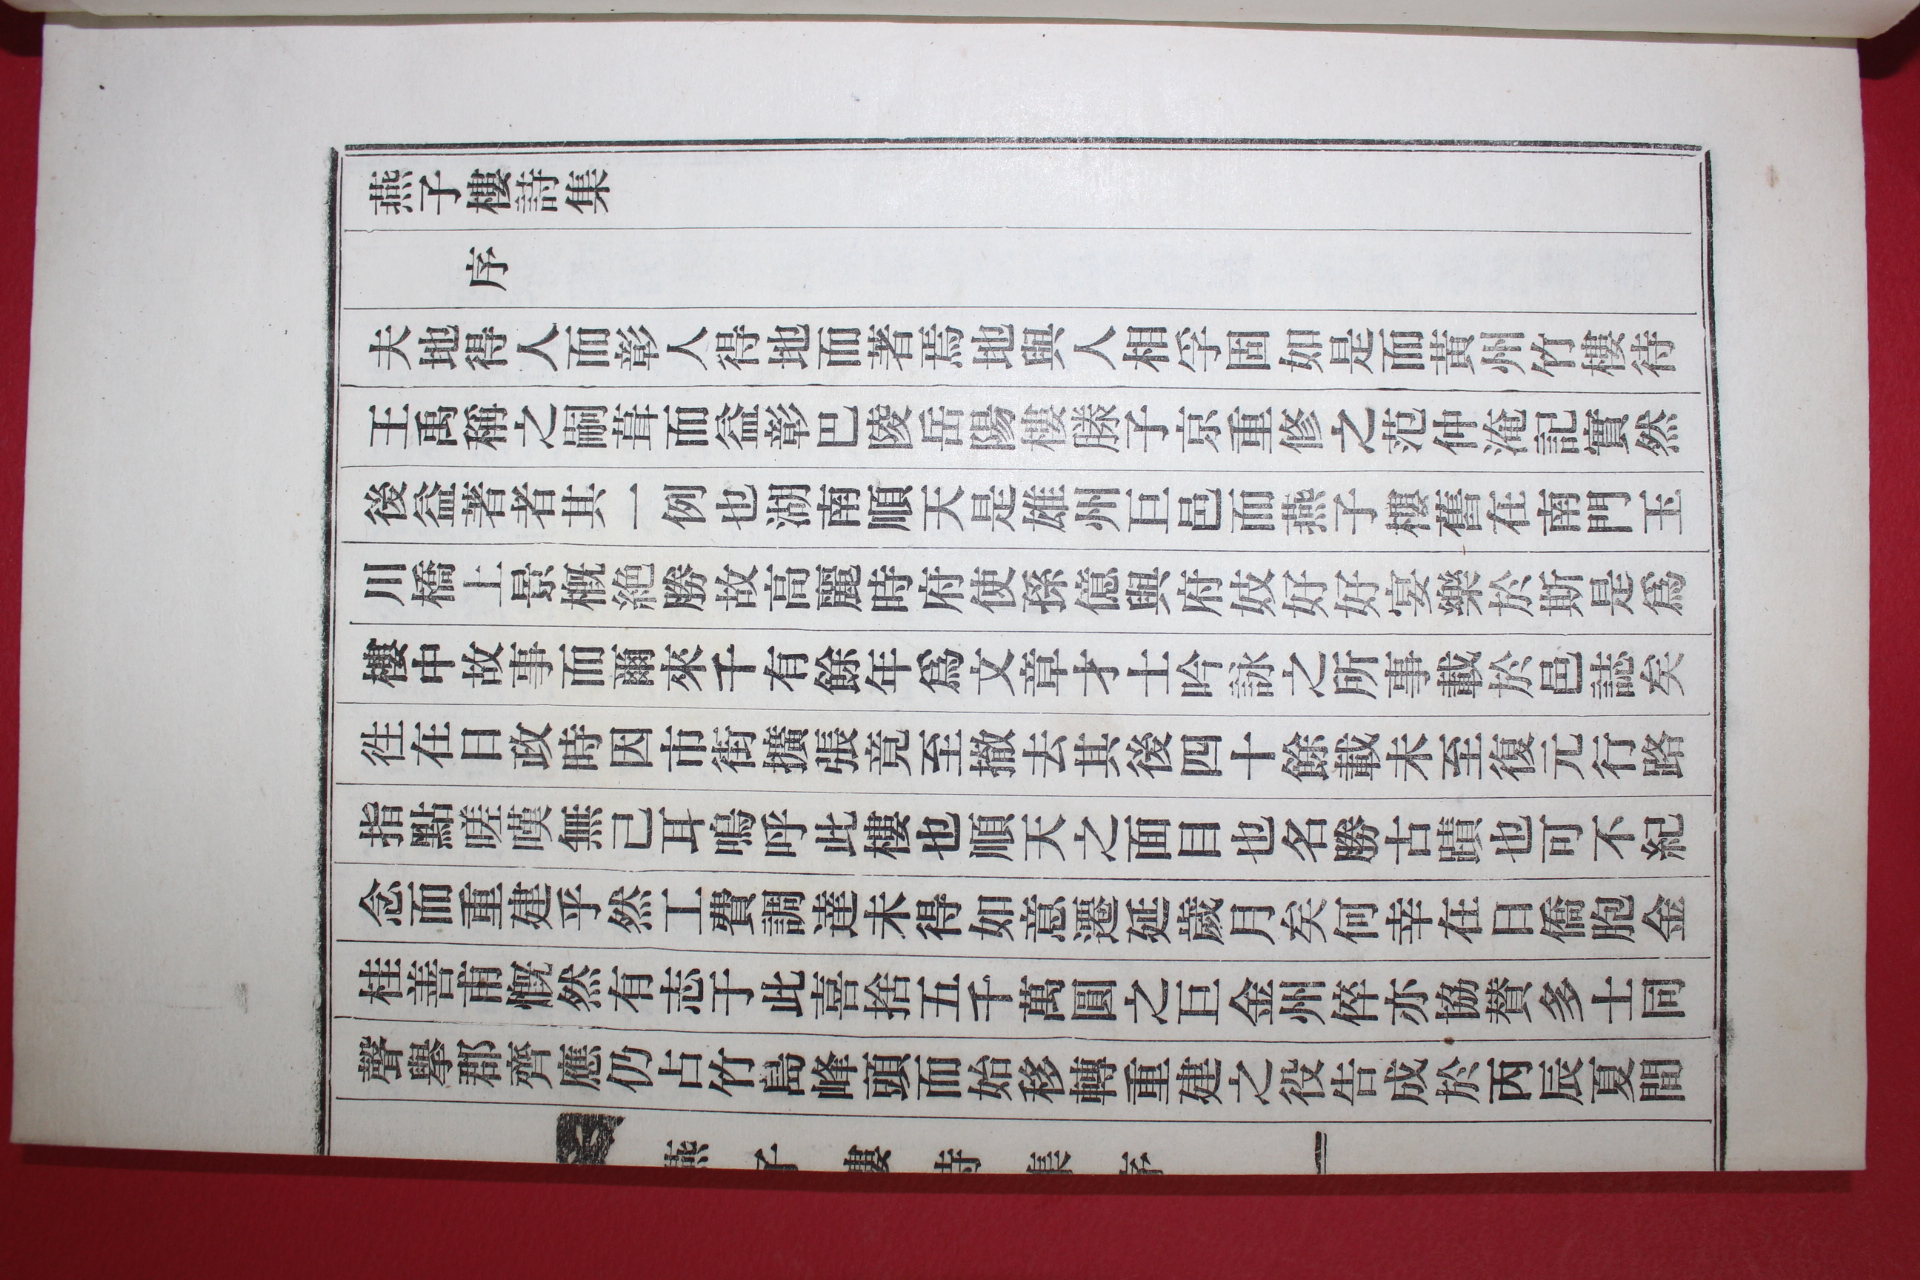 燕子樓詩集
序
夫地得人而彰人得地而著焉地與人相孚固如是而黃州竹樓待
王禹稱之嗣葺而益彰巴陵岳陽樓滕子京重修之范仲淹記實然
後益著者其一例也湖南順天是雄州巨邑而燕子樓舊在南門玉
川橋上景槪絶勝故高麗時府使孫億與府妓好好宴樂於斯是爲
樓中故事而爾來千有餘年爲文章才士吟詠之所事載於邑誌矣
徃在日政時因市街擴張竟至撤去其後四十餘載未至復元行路
指點嗟嘆無已耳嗚呼此樓也順天之面目也名勝古蹟也可不紀
念而重建乎然工費調達未得如意遷延歲月矣何幸在日僑胞金
桂善甫慨然有志于此喜捨五千萬圓之巨金州倅亦協贊多士同
聲擧郡齊應仍占竹島峰頭而始移轉重建之役告成於丙辰夏間
燕子樓詩集序 一